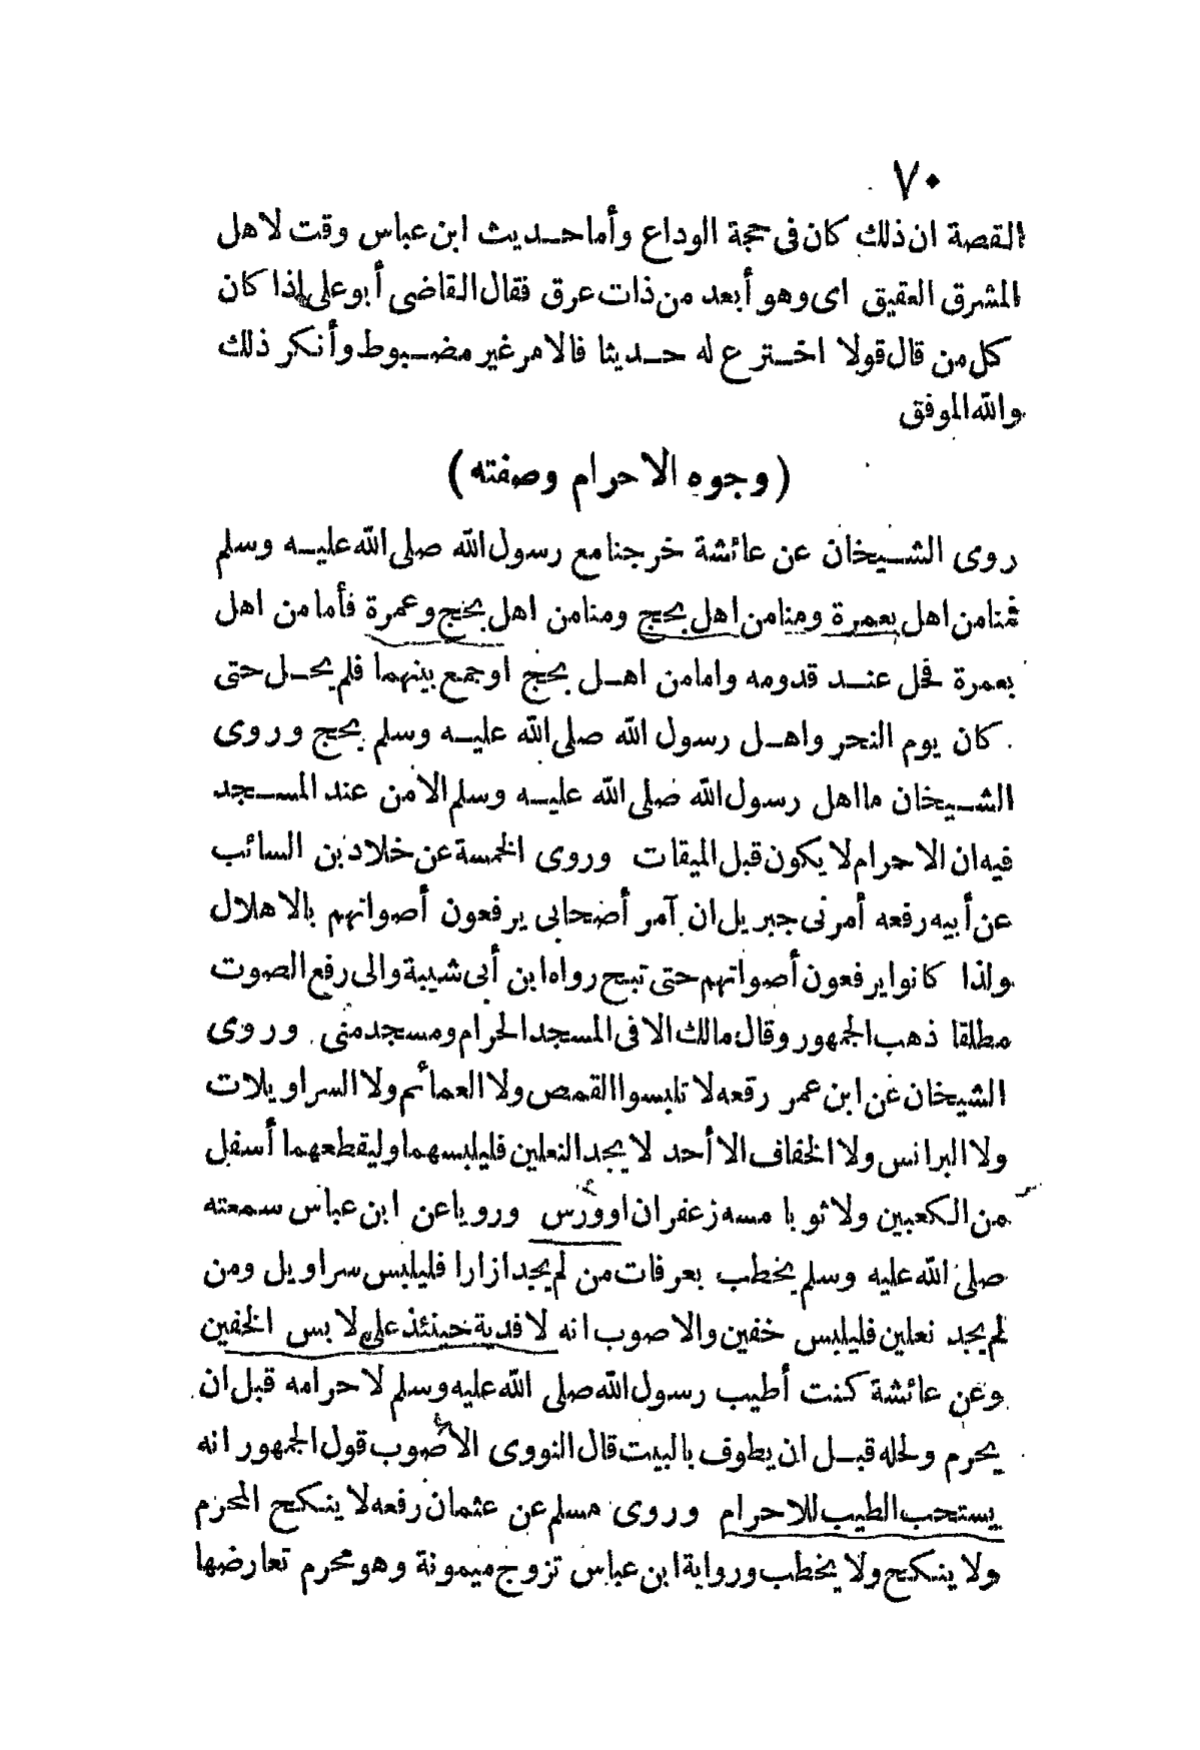 ٧٠
القصة ان ذلك كان فى حجة الوداع وأما حديث ابن عباس وقت لاهل
المشرق العقيق اى وهو أبعد من ذات عرق فقال القاضى أبو على إذا كان
كل من قال قولا اخترع له حديثا فالامر غير مضبوط وأنكر ذلك
والله الموفق
(وجوه الاحرام وصفته)
روى الشيخان عن عائشة خرجنا مع رسول الله صلى الله عليه وسلم
فمنا من اهل بعمرة ومنا من اهل بحج ومنا من اهل بحج وعمرة فأما من اهل
بعمرة فحل عند قدومه واما من اهل بحج او جمع بينهما فلم يحل حتى
كان يوم النحر واهل رسول الله صلى الله عليه وسلم بحج وروى
الشيخان ما اهل رسول الله صلى الله عليه وسلم الا من عند المسجد
فيه ان الاحرام لا يكون قبل الميقات وروى الخمسة عن خلاد بن السائب
عن أبيه رفعه أمرنى جبريل ان آمر أصحابى يرفعون أصواتهم بالاهلال
ولذا كانوا يرفعون أصواتهم حتى تبح رواه ابن أبى شيبة والى رفع الصوت
مطلقا ذهب الجمهور وقال مالك الا فى المسجد الحرام ومسجد منى وروى
الشيخان عن ابن عمر رفعه لا تلبسوا القمص ولا العمائم ولا السراويلات
ولا البرانس ولا الخفاف الا أحد لا يجد النعلين فليلبسهما وليقطعهما أسفل
من الكعبين ولا ثوبا مسه زعفران او ورس ورويا عن ابن عباس سمعته
صلى الله عليه وسلم يخطب بعرفات من لم يجد ازارا فليلبس سراويل ومن
لم يجد نعلين فليلبس خفين والاصوب انه لا فدية حينئذ على لابس الخفين
وعن عائشة كنت أطيب رسول الله صلى الله عليه وسلم لاحرامه قبل ان
يحرم ولحله قبل ان يطوف بالبيت قال النووى الاصوب قول الجمهور انه
يستحب الطيب للاحرام وروى مسلم عن عثمان رفعه لا ينكح المحرم
ولا ينكح ولا يخطب ورواية ابن عباس تزوج ميمونة وهو محرم تعارضها